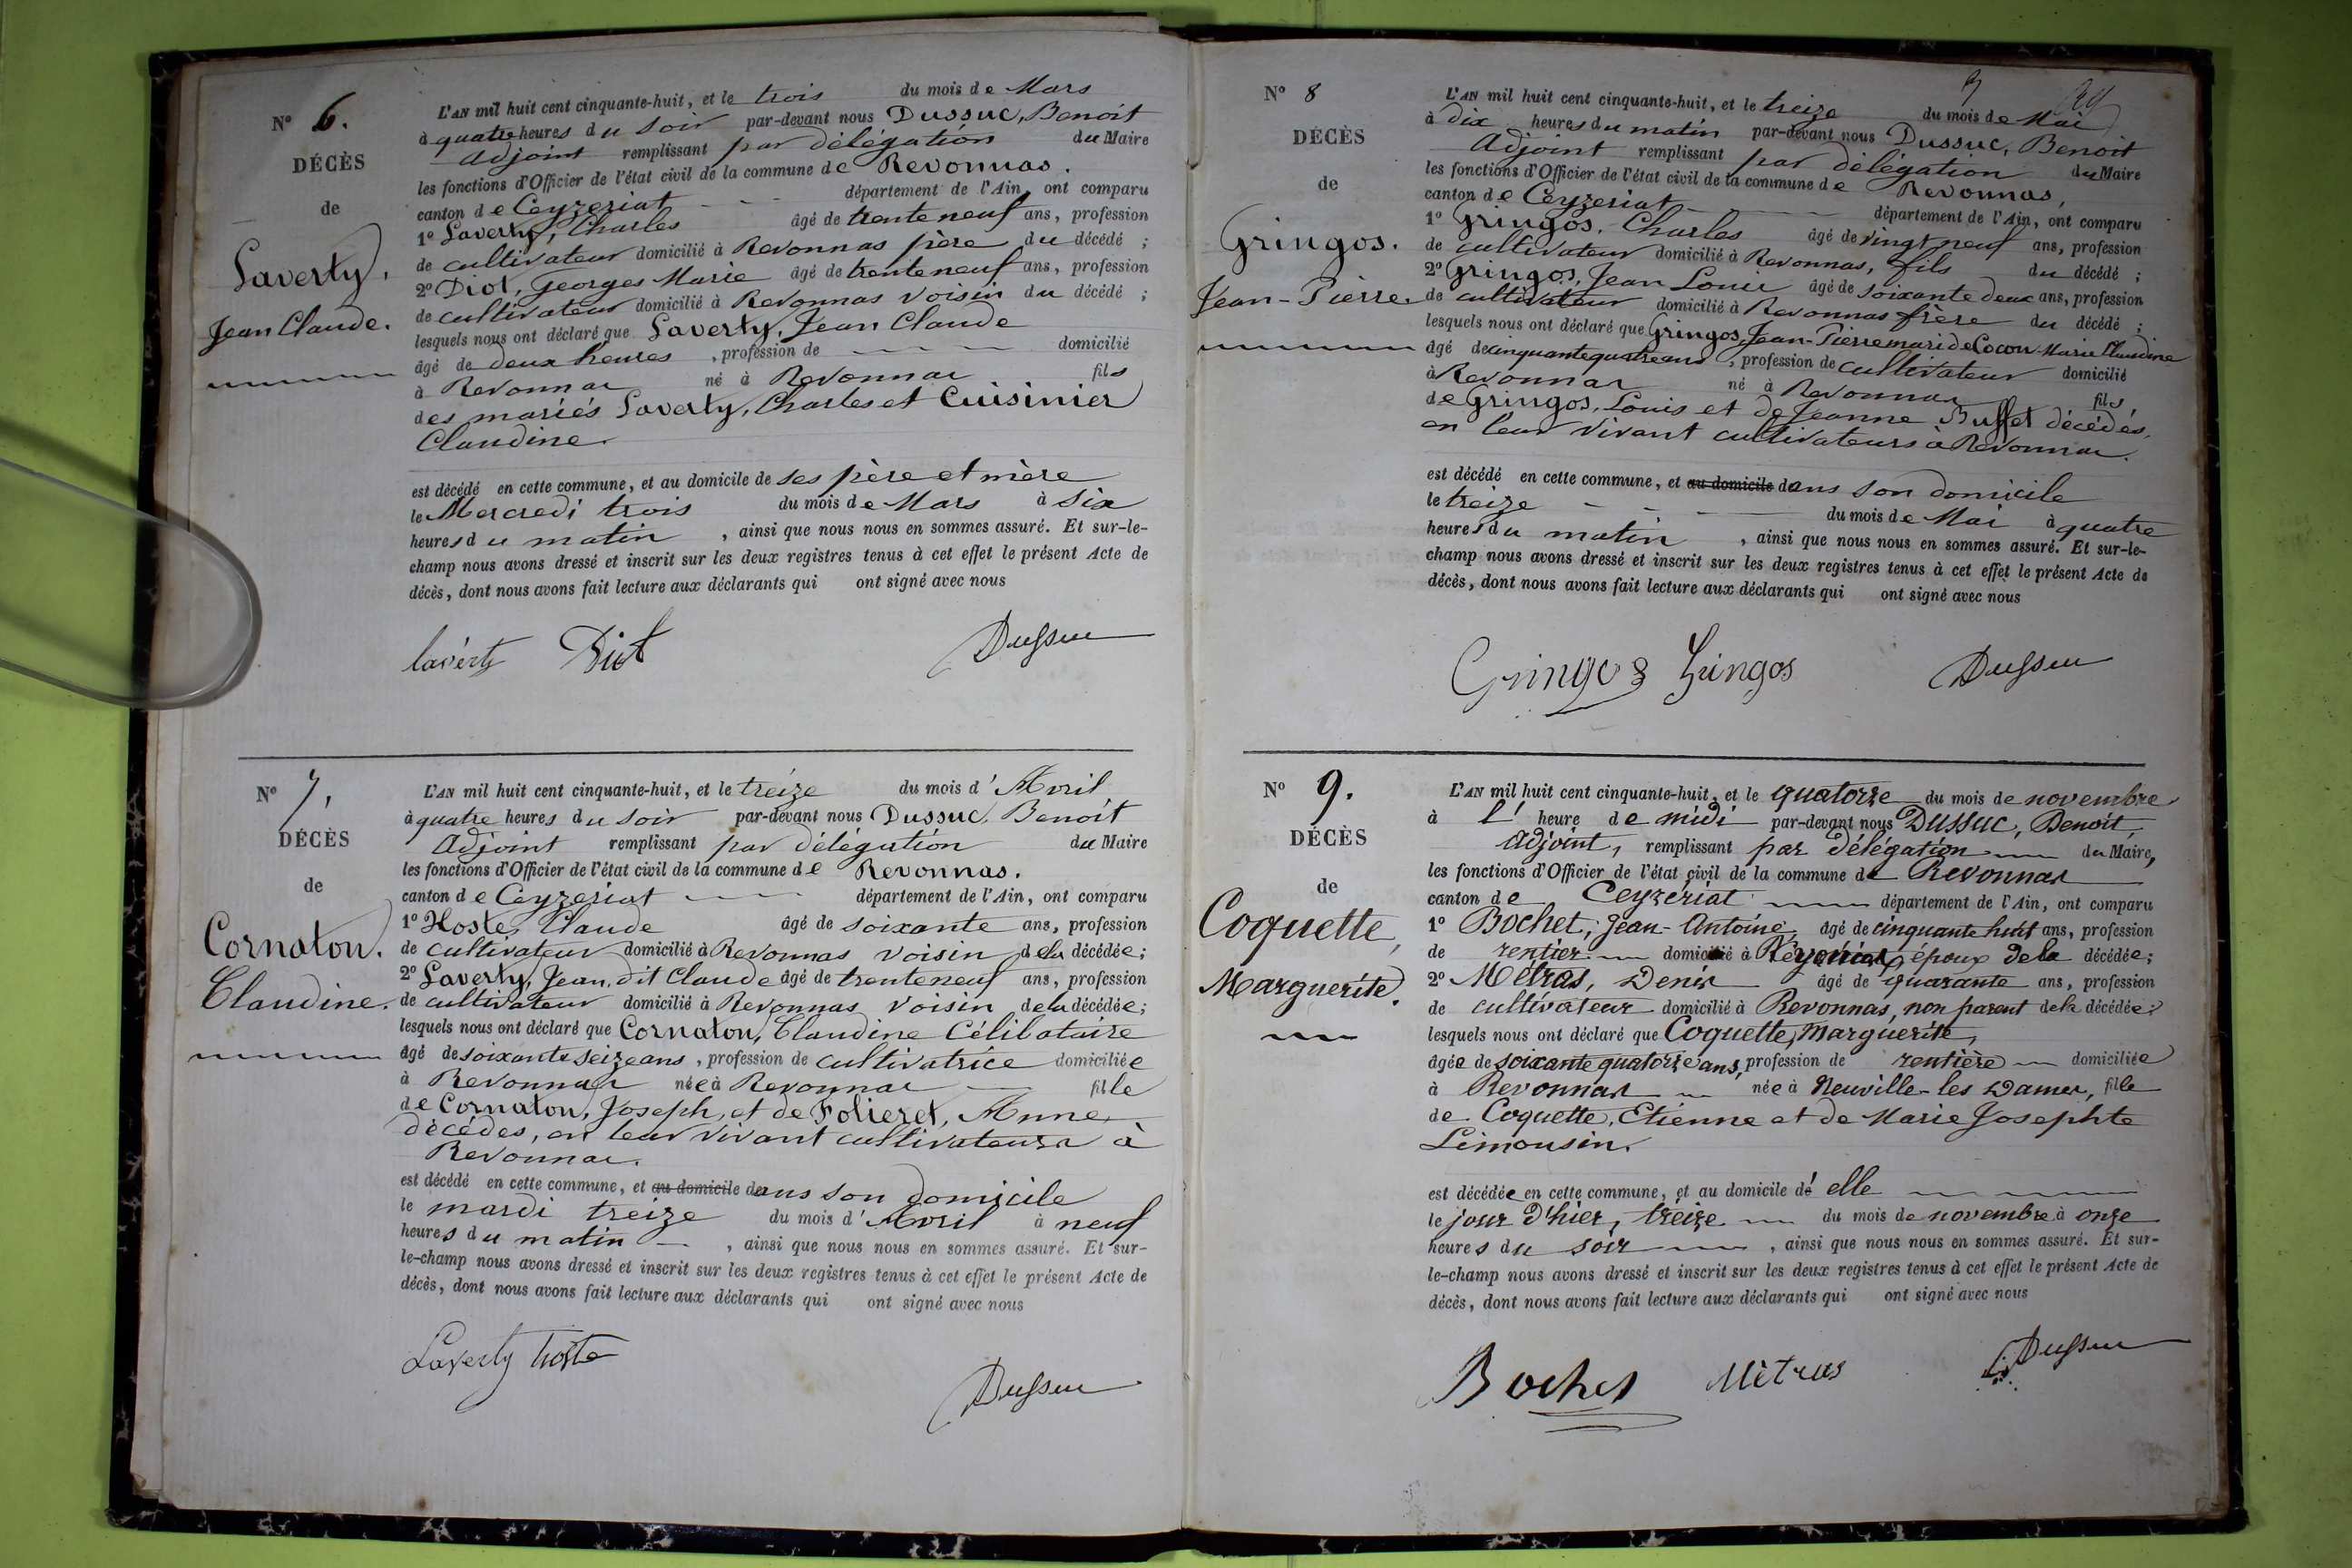 N° 6.
DÉCÈS
de
Laverty,
Jean Claude.
L'AN mil huit cent cinquante-huit, et le trois du mois de Mars
à quatre heures du soir par-devant nous Dussuc, Benoit
Adjoint remplissant par délégation du Maire
les fonctions d'Officier de l'état civil de la commune de Revonnas.
canton de Ceyzeriat département de l'Ain, ont comparu
1° Laverty, Charles âgé de trente neuf ans, profession
de cultivateur domicilié à Revonnas père du décédé ;
2° Diot, Georges Marie âgé de trente neuf ans, profession
de cultivateur domicilié à Revonnas voisin du décédé ;
lesquels nous ont déclaré que Laverty, Jean Claude
âgé de deux heures , profession de domicilié
à Revonnas né à Revonnas fils
des mariés Laverty, Charles et Cuisinier
Claudine.
est décédé en cette commune, et au domicile de ses père et mère
le Mercredi trois du mois de Mars à six
heures du matin , ainsi que nous nous en sommes assuré. Et sur-le-
champ nous avons dressé et inscrit sur les deux registres tenus à cet effet le présent Acte de
décès, dont nous avons fait lecture aux déclarants qui ont signé avec nous
laverty Diot Dussuc
N° 7,
DÉCÈS
de
Cornaton.
Claudine.
L'AN mil huit cent cinquante-huit, et le treize du mois d' Avril
à quatre heures du soir par-devant nous Dussuc, Benoit
Adjoint remplissant par délégation du Maire
les fonctions d'Officier de l'état civil de la commune de Revonnas.
canton de Ceyzeriat département de l'Ain, ont comparu
1° Hoste, Claude âgé de soixante ans, profession
de cultivateur domicilié à Revonnas voisin de la décédée;
2° Laverty, Jean, dit Claude âgé de trente neuf ans, profession
de cultivateur domicilié à Revonnas voisin de la décédée;
lesquels nous ont déclaré que Cornaton, Claudine Célibataire
âgé de soixante seize ans , profession de cultivatrice domiciliée
à Revonnas née à Revonnas fille
de Cornaton, Joseph, et de Folieret, Anne,
décédés, en leur vivant cultivateurs à
Revonnas.
est décédé en cette commune, et au domicile dans son domicile
le mardi treize du mois d' Avril à neuf
heures du matin , ainsi que nous nous en sommes assuré. Et sur-
le-champ nous avons dressé et inscrit sur les deux registres tenus à cet effet le présent Acte de
décès, dont nous avons fait lecture aux déclarants qui ont signé avec nous
Laverty hoste
Dussuc
N° 8
DÉCÈS
de
Gringos.
Jean-Pierre.
L'AN mil huit cent cinquante-huit, et le treize du mois de Mai
à dix heures du matin par-devant nous Dussuc, Benoit
Adjoint remplissant par délégation du Maire
les fonctions d'Officier de l'état civil de la commune de Revonnas,
canton de Ceyzeriat département de l'Ain, ont comparu
1° Gringos, Charles âgé de vingt neuf ans, profession
de cultivateur domicilié à Revonnas, fils du décédé ;
2° Gringos, Jean Louis âgé de soixante deux ans, profession
de cultivateur domicilié à Revonnas frère du décédé ;
lesquels nous ont déclaré que Gringos, Jean-Pierre mari de Cocon Marie Claudine
âgé de cinquante quatre ans , profession de cultivateur domicilié
à Revonnas né à Revonnas fils
de Gringos, Louis et de Jeanne Buffet décédés,
en leur vivant cultivateurs à Revonnas.
est décédé en cette commune, et au domicile dans son domicile
le treize du mois de Mai à quatre
heures du matin , ainsi que nous nous en sommes assuré. Et sur-le-
champ nous avons dressé et inscrit sur les deux registres tenus à cet effet le présent Acte de
décès, dont nous avons fait lecture aux déclarants qui ont signé avec nous
Gringos Gringos Dussuc
N° 9.
DÉCÈS
de
Coquette,
Marguerite.
L'AN mil huit cent cinquante-huit, et le quatorze du mois de novembre
à l' heure de midi par-devant nous Dussuc, Benoit,
adjoint, remplissant par délégation du Maire,
les fonctions d'Officier de l'état civil de la commune de Revonnas
canton de Ceyzériat département de l'Ain, ont comparu
1° Bochet, Jean-Antoine, âgé de cinquante huit ans, profession
de rentier domicilié à époux de la décédée;
2° Métras, Denis âgé de quarante ans, profession
de cultivateur domicilié à Revonnas, non parent de la décédée;
lesquels nous ont déclaré que Coquette, Marguerite,
âgée de soixante quatorze ans, profession de rentière domiciliée
à Revonnas née à Neuville-les Dames, fille
de Coquette, Etienne et de Marie Josephte
Limousin.
est décédée en cette commune, et au domicile d' elle
le jour d'hier, treize du mois de novembre à onze
heures du soir , ainsi que nous nous en sommes assuré. Et sur-
le-champ nous avons dressé et inscrit sur les deux registres tenus à cet effet le présent Acte de
décès, dont nous avons fait lecture aux déclarants qui ont signé avec nous
Bochet Mètras Dussuc